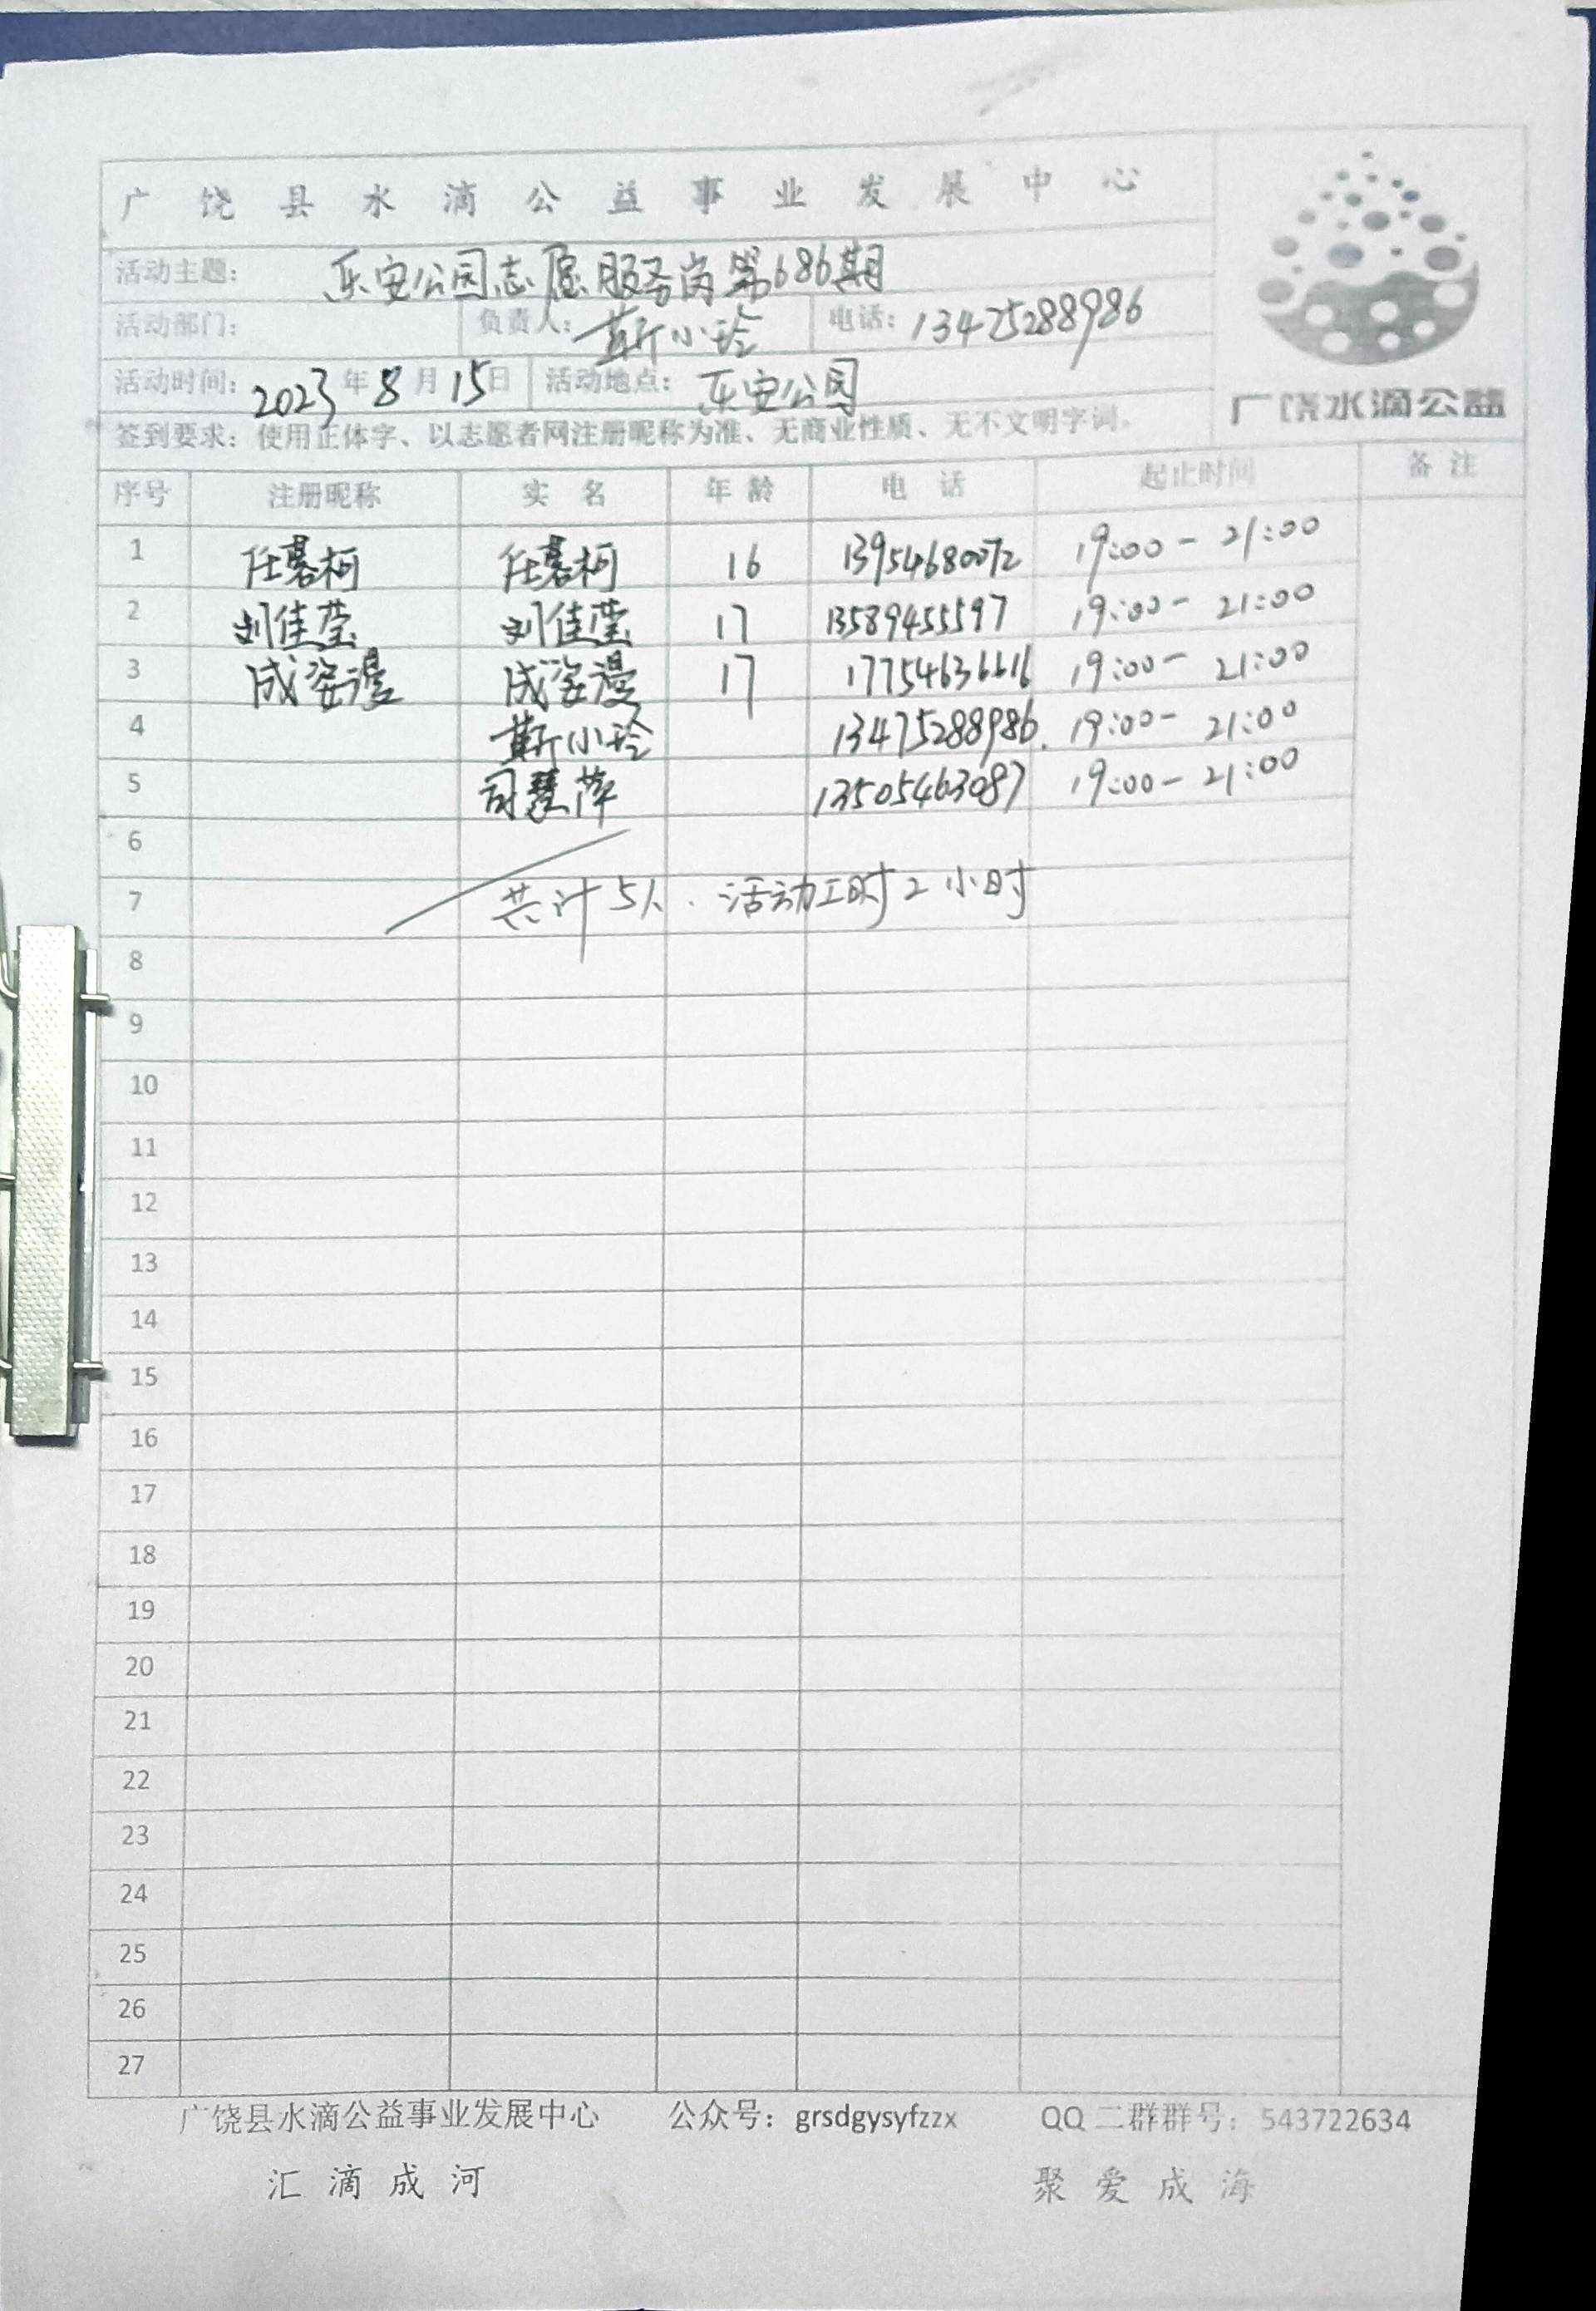 广饶县水滴公益事业发展中心
活动主题： 乐安公园志愿服务岗第686期
活动部门： 负责人： 靳小玲 电话： 13475288986
活动时间： 2023年8月15日 活动地点： 乐安公园
广饶水滴公益
签到要求：使用正体字、以志愿者网注册昵称为准、无商业性质、无不文明字词。
序号 注册昵称 实 名 年 龄 电 话 起止时间 备 注
1 任慕柯 任慕柯 16 13954680072 19:00- 21:00
2 刘佳莹 刘佳莹 17 13589455597 19:00- 21:00
3 成姿漫 成姿漫 17 17754636616 19:00- 21:00
4 靳小玲 13475288986. 19:00- 21:00
5 司慧萍 13505463087 19:00- 21:00
6
7 共计5人. 活动工时2小时
8
9
10
11
12
13
14
15
16
17
18
19
20
21
22
23
24
25
26
27
广饶县水滴公益事业发展中心 公众号：grsdgysyfzzx QQ 二群群号：543722634
汇滴成河 聚爱成海